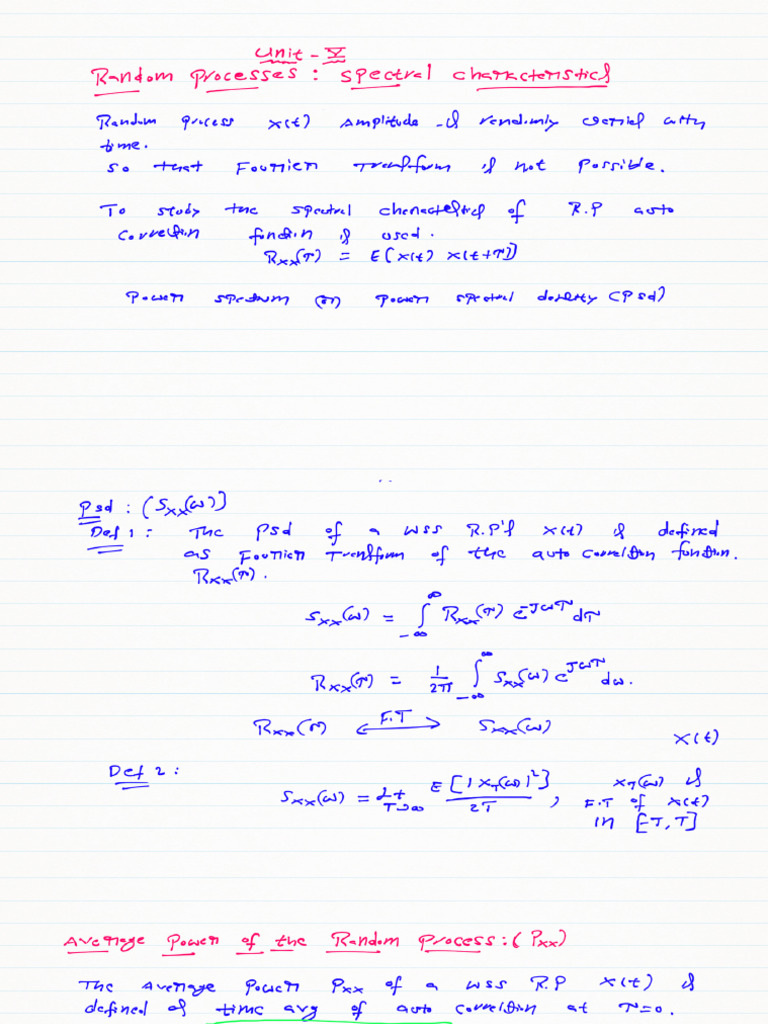 Unit - V
Random Processes : Spectral characteristics
Random process X(t) Amplitude is randomly varied with
time.
So that Fourier Transform is not possible.
To study the spectral characteristics of R.P auto
correlation function is used.
Rxx(τ) = E[X(t) X(t+τ)]
Power spectrum (or) power spectral density (Psd)
Psd : (Sxx(ω)]
Def 1 : The psd of a wss R.P's X(t) is defined
as Fourier Transform of the auto correlation function.
Rxx(τ).
Sxx(ω) = ∫_{-∞}^{∞} Rxx(τ) e^{-jωτ} dτ
Rxx(τ) = 1/2π ∫_{-∞}^{∞} Sxx(ω) e^{jωτ} dω.
Rxx(τ) ←F.T→ Sxx(ω)
X(t)
Def 2 :
Sxx(ω) = Lt_{T→∞} E[|X_T(ω)|²] / 2T , X_T(ω) is
F.T of X(t)
in [-T, T]
Average Power of the Random Process : (Pxx)
The Average power Pxx of a wss R.P X(t) is
defined as time avg of auto correlation at τ=0.